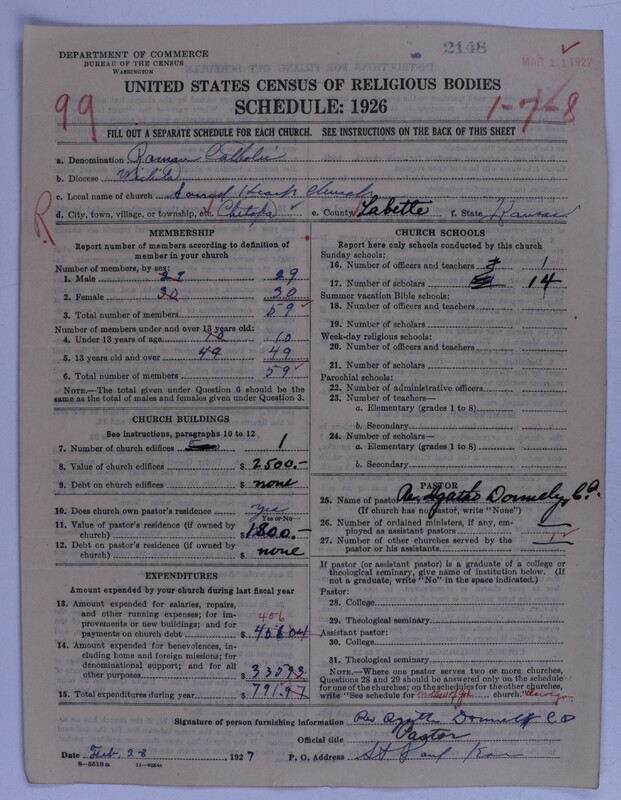 2148
MAR 11 1927
DEPARTMENT OF COMMERCE
BUREAU OF THE CENSUS
WASHINGTON
UNITED STATES CENSUS OF RELIGIOUS BODIES
SCHEDULE: 1926
99
1-7-8
FILL OUT A SEPARATE SCHEDULE FOR EACH CHURCH. SEE INSTRUCTIONS ON THE BACK OF THIS SHEET
a. Denomination Roman Catholic
b. Diocese Wichita
c. Local name of church Sacred Heart Church
R
d. City, town, village, or township, etc. Chetopa e. County Labette f. State Kansas
MEMBERSHIP
Report number of members according to definition of member in your church
Number of members, by sex:
1. Male 29
2. Female 30 30
3. Total number of members 59
Number of members under and over 13 years old:
4. Under 13 years of age 10 10
5. 13 years old and over 49 49
6. Total number of members 59
NOTE.—The total given under Question 6 should be the same as the total of males and females given under Question 3.
CHURCH BUILDINGS
See instructions, paragraphs 10 to 12
7. Number of church edifices 1
8. Value of church edifices $ 2500.-
9. Debt on church edifices $ none
10. Does church own pastor's residence yes
Yes or No
11. Value of pastor's residence (if owned by church) $ 1800.-
12. Debt on pastor's residence (if owned by church) $ none
EXPENDITURES
Amount expended by your church during last fiscal year
13. Amount expended for salaries, repairs, and other running expenses; for improvements or new buildings; and for payments on church debt $ 456 456 04
14. Amount expended for benevolences, including home and foreign missions; for denominational support; and for all other purposes $ 335 93
15. Total expenditures during year $ 791.97
CHURCH SCHOOLS
Report here only schools conducted by this church
Sunday schools:
16. Number of officers and teachers 1
17. Number of scholars 14
Summer vacation Bible schools:
18. Number of officers and teachers
19. Number of scholars
Week-day religious schools:
20. Number of officers and teachers
21. Number of scholars
Parochial schools:
22. Number of administrative officers
23. Number of teachers—
a. Elementary (grades 1 to 8)
b. Secondary
24. Number of scholars—
a. Elementary (grades 1 to 8)
b. Secondary
PASTOR
25. Name of pastor Rev. Agatho Donnely, C.P.
(If church has no pastor, write "None")
26. Number of ordained ministers, if any, employed as assistant pastors
27. Number of other churches served by the pastor or his assistants 1
If pastor (or assistant pastor) is a graduate of a college or theological seminary, give name of institution below. (If not a graduate, write "No" in the space indicated.)
Pastor:
28. College
29. Theological seminary
Assistant pastor:
30. College
31. Theological seminary
NOTE.—Where one pastor serves two or more churches, Questions 28 and 29 should be answered only on the schedule for one of the churches; on the schedules for the other churches, write "See schedule for church,"
Signature of person furnishing information Rev. Agatho Donnelly C.P.
Official title Pastor
Date Feb. 28, 1927 P. O. Address St. Paul Kan
8—5518a